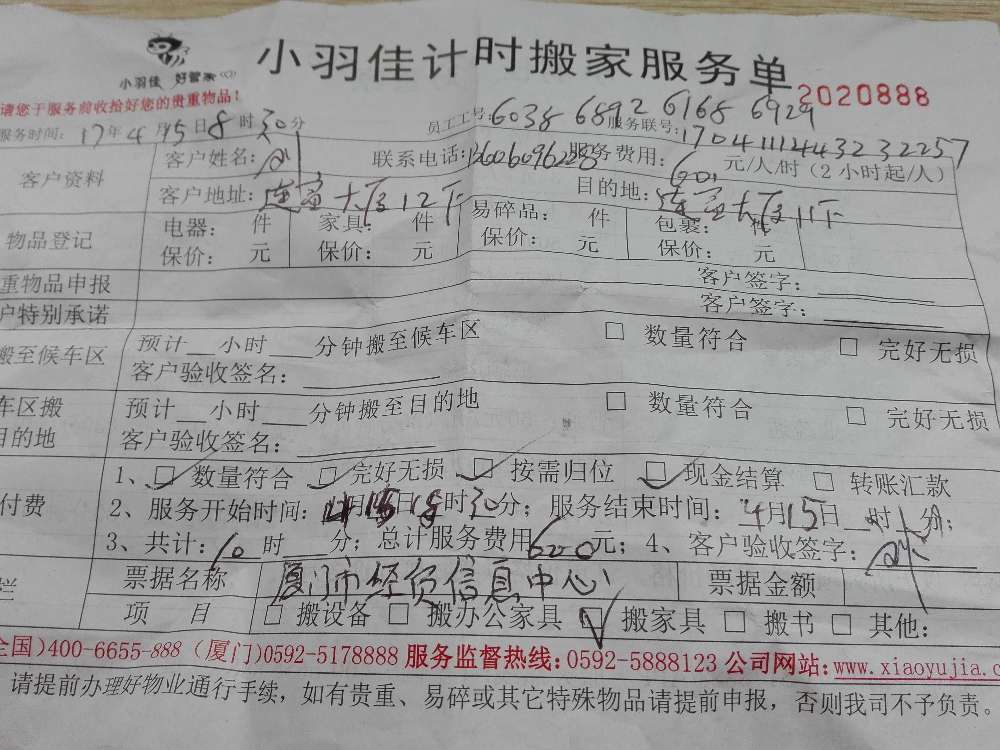 小羽佳 好管家
小羽佳计时搬家服务单
2020888
请您于服务前收拾好您的贵重物品!
服务时间: 17年4月15日8时30分 员工工号: 6038 6892 6168 6929 服务联号: 17041114432 32257
客户资料
客户姓名: 联系电话: 服务费用: 60 元/人/时（2小时起/人）
客户地址: 大厦12下 目的地: 大厦11下
物品登记
电器: 件 家具: 件 易碎品: 件 包裹: 件
保价: 元 保价: 元 保价: 元 保价: 元
重物品申报 客户签字:
户特别承诺 客户签字:
搬至候车区
预计__小时___分钟搬至候车区 □ 数量符合 □ 完好无损
客户验收签名:
车区搬
目的地
预计__小时___分钟搬至目的地 □ 数量符合 □ 完好无损
客户验收签名:
付费
1、□ 数量符合 □ 完好无损 □ 按需归位 □ 现金结算 □ 转账汇款
2、服务开始时间: 4月15日8时30分; 服务结束时间: 4月15日__时__分;
3、共计: 10时___分; 总计服务费用600元; 4、客户验收签字:
栏
票据名称 厦门市经贸信息中心 票据金额
项 目 □ 搬设备 □ 搬办公家具 □ 搬家具 □ 搬书 □ 其他:
全国)400-6655-888（厦门)0592-5178888 服务监督热线: 0592-5888123 公司网站: www.xiaoyujia.c
请提前办理好物业通行手续，如有贵重、易碎或其它特殊物品请提前申报，否则我司不予负责。